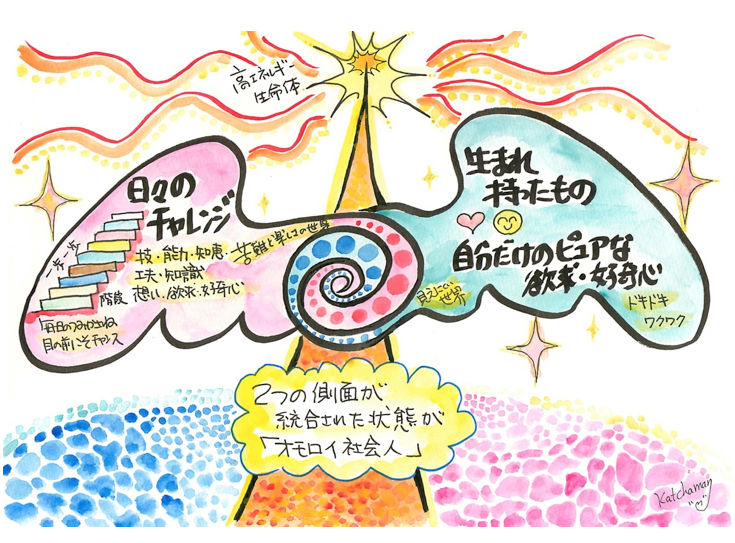 高エネルギー
生命体
日々の
チャレンジ
一歩一歩
階段
技・能力・知恵・
工夫・知識
想い、欲求・好奇心
苦難と楽しさの世界
「毎日のつみかさね
目の前にこそチャンス
生まれ
持ったもの
自分だけのピュアな
欲求・好奇心
見えない
世界
ドキドキ
ワクワク
2つの側面が
統合された状態が
「オモロイ社会人」
Katchaman